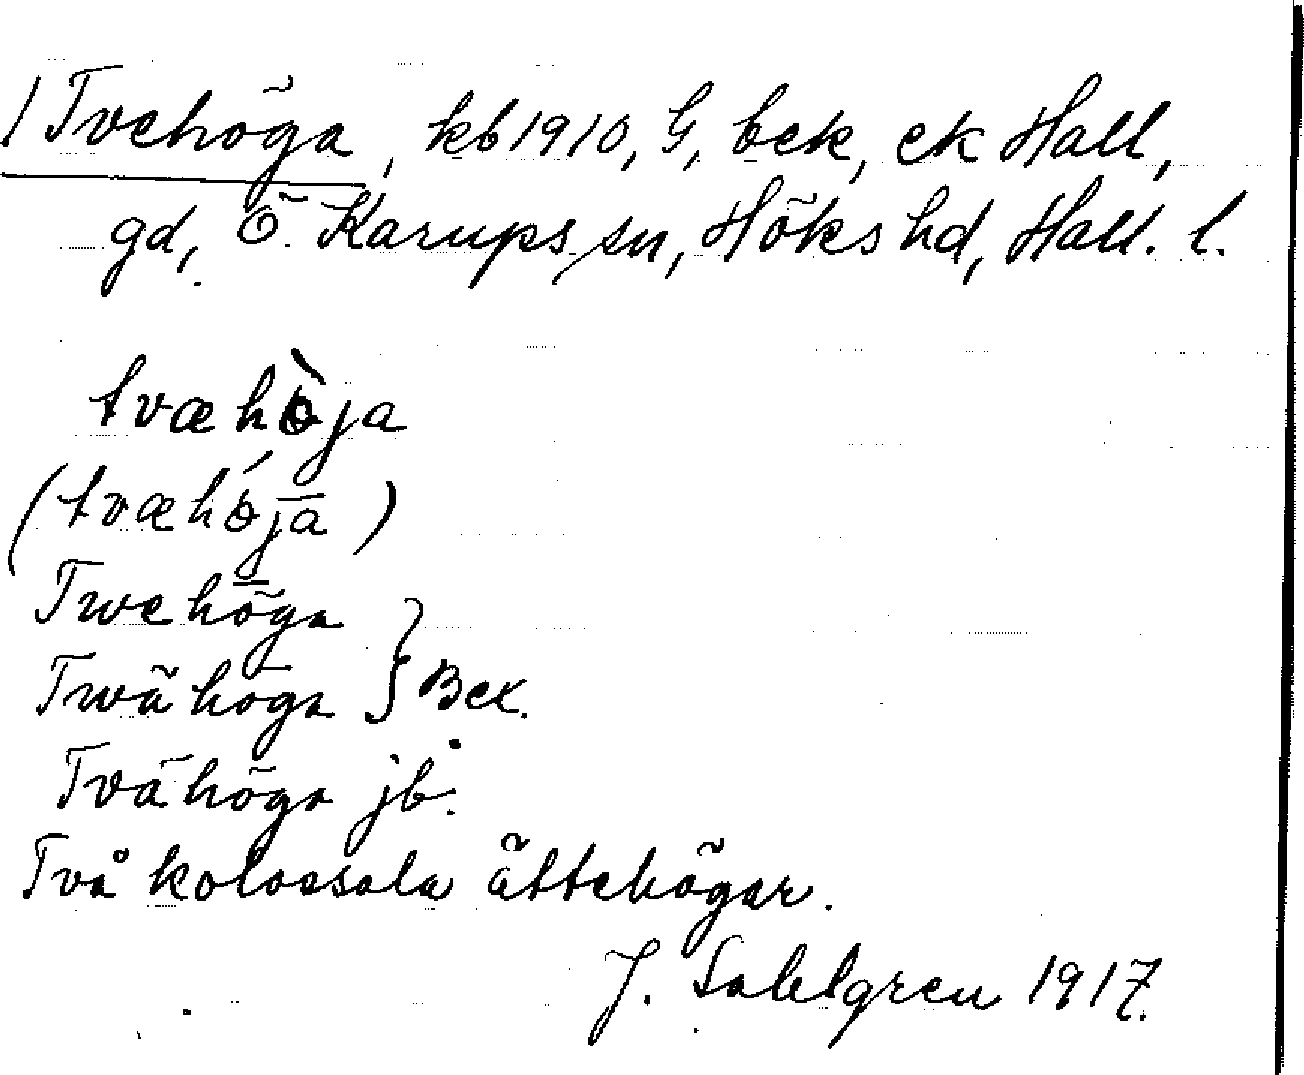 / Tvehöga, kb 1910, G, bek, ek Hall,
gd, Ö. Karups sn, Höks hd, Hall. l.
tvæhò̵ja
(tvæhó̵ja)
Twehöga
Twähöga } Bex.
Tvähöga jb.
Två kolossala ättehögar.
J. Sahlgren 1917.